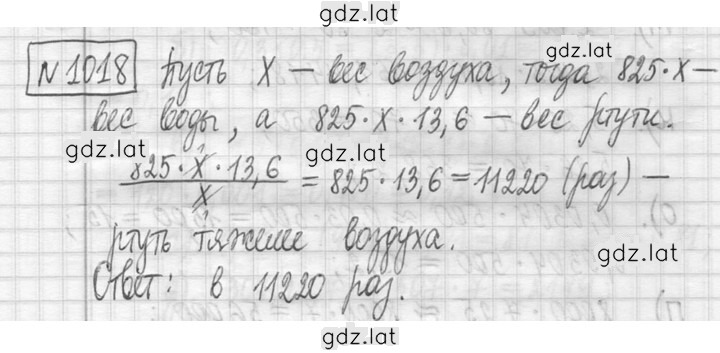 gdz.lat
№ 1018 Пусть X – вес воздуха, тогда 825·X –
gdz.lat
вес воды, а 825·X·13,6 – вес ртути.
gdz.lat
gdz.lat
825·X·13,6 / X = 825·13,6 = 11220 (раз) –
ртуть тяжелее воздуха.
gdz.lat
Ответ: в 11220 раз.
gdz.lat